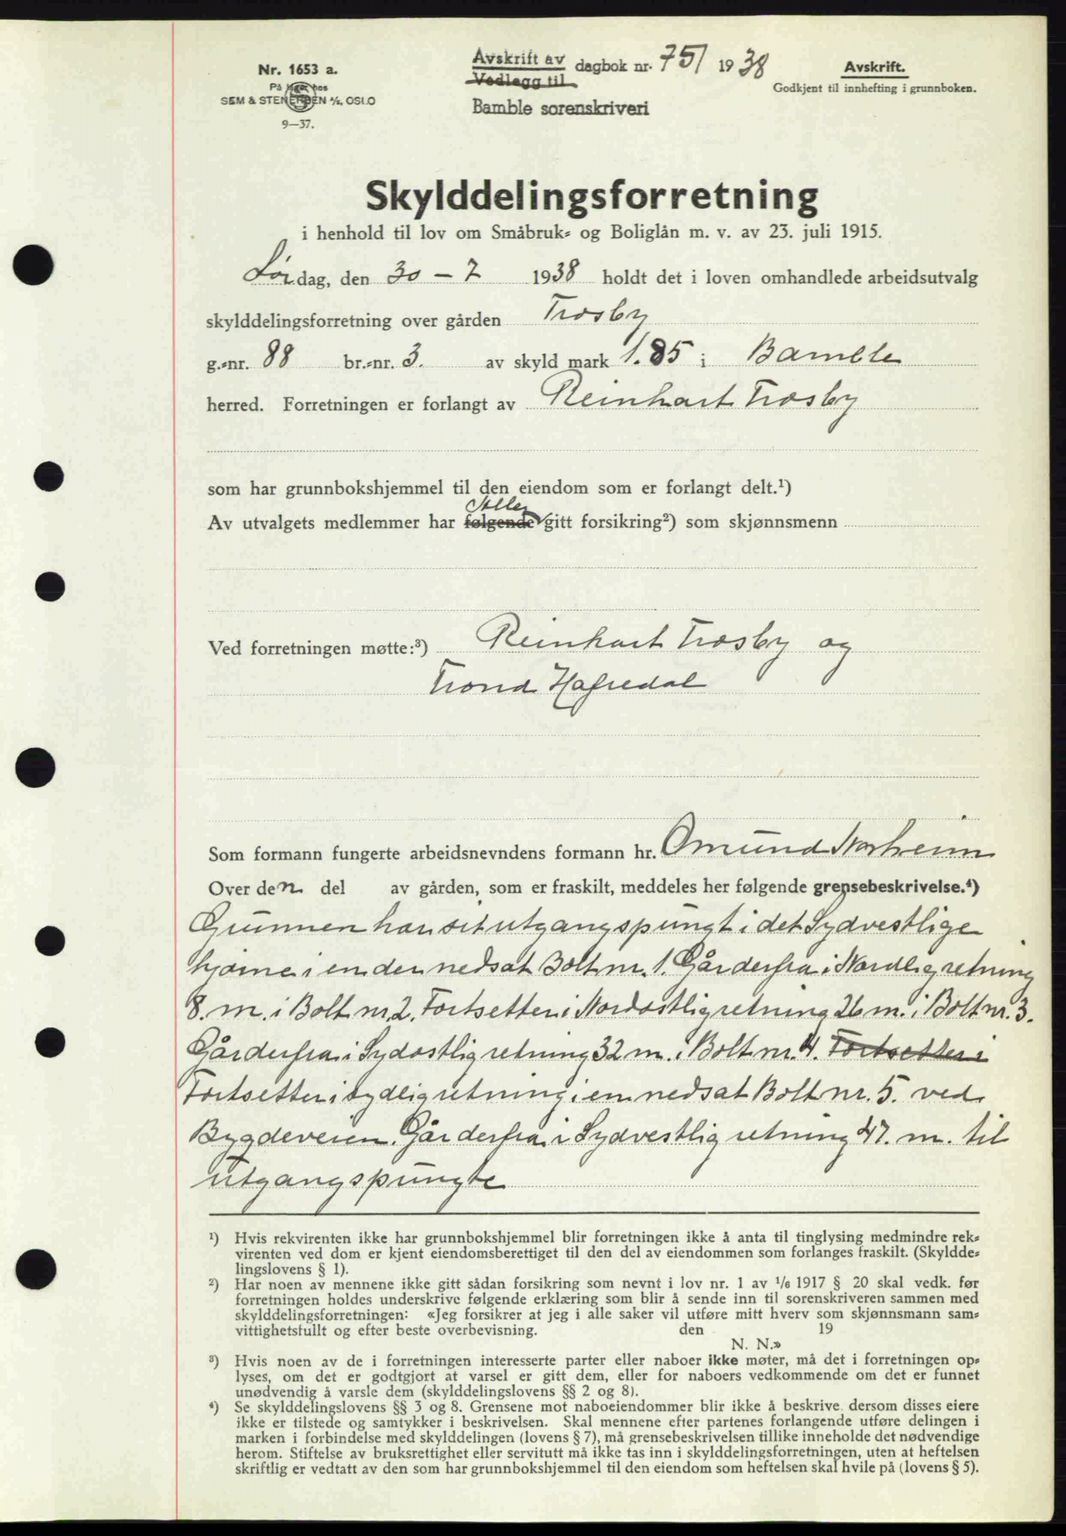 Nr. 1653 a.
På lager hos
SEM & STENERSEN A/S, OSLO
9—37.
Avskrift av
Vedlegg til
dagbok nr. 751 1938
Bamble sorenskriveri
Avskrift.
Godkjent til innhefting i grunnboken.
Skylddelingsforretning
i henhold til lov om Småbruk- og Boliglån m. v. av 23. juli 1915.
Lørdag, den 30 – 7 1938 holdt det i loven omhandlede arbeidsutvalg
skylddelingsforretning over gården Trosby
g.-nr. 88 br.-nr. 3. av skyld mark 1.85 i Bamble
herred. Forretningen er forlangt av Reinhart Trosby
som har grunnbokshjemmel til den eiendom som er forlangt delt.¹)
Av utvalgets medlemmer har følgende Alle gitt forsikring²) som skjønnsmenn
Ved forretningen møtte:³) Reinhart Trosby og
Trond Hafredal
Som formann fungerte arbeidsnevndens formann hr. Omund Norheim
Over den del av gården, som er fraskilt, meddeles her følgende grensebeskrivelse.⁴)
Grunnen har sit utgangspungt i det Sydvestlige
hjørne i en der nedsat Bolt nr. 1. Går derfra i Nordlig retning
8. m. i Bolt nr. 2. Fortsetter i Nordøstlig retning 26 m. i Bolt nr. 3.
Går derfra i Sydøstlig retning 32 m. i Bolt nr. 4. Fortsetter i
Fortsetter i sydlig retning i en nedsat Bolt nr. 5. ved
Bygdeveien. Går derfra i Sydvestlig retning 47. m. til
utgangspungte
¹) Hvis rekvirenten ikke har grunnbokshjemmel blir forretningen ikke å anta til tinglysing medmindre rek-
virenten ved dom er kjent eiendomsberettiget til den del av eiendommen som forlanges fraskilt. (Skyldde-
lingslovens § 1).
²) Har noen av mennene ikke gitt sådan forsikring som nevnt i lov nr. 1 av 1/6 1917 § 20 skal vedk. før
forretningen holdes underskrive følgende erklæring som blir å sende inn til sorenskriveren sammen med
skylddelingsforretningen: «Jeg forsikrer at jeg i alle saker vil utføre mitt hverv som skjønnsmann sam-
vittighetsfullt og efter beste overbevisning. den 19
N. N.»
³) Hvis noen av de i forretningen interesserte parter eller naboer ikke møter, må det i forretningen op-
lyses, om det er godtgjort at varsel er gitt dem, eller for naboers vedkommende om det er funnet
unødvendig å varsle dem (skylddelingslovens §§ 2 og 8).
⁴) Se skylddelingslovens §§ 3 og 8. Grensene mot naboeiendommer blir ikke å beskrive dersom disses eiere
ikke er tilstede og samtykker i beskrivelsen. Skal mennene efter partenes forlangende utføre delingen i
marken i forbindelse med skylddelingen (lovens § 7), må grensebeskrivelsen tillike inneholde det nødvendige
herom. Stiftelse av bruksrettighet eller servitutt må ikke tas inn i skylddelingsforretningen, uten at heftelsen
skriftlig er vedtatt av den som har grunnbokshjemmel til den eiendom som heftelsen skal hvile på (lovens § 5).